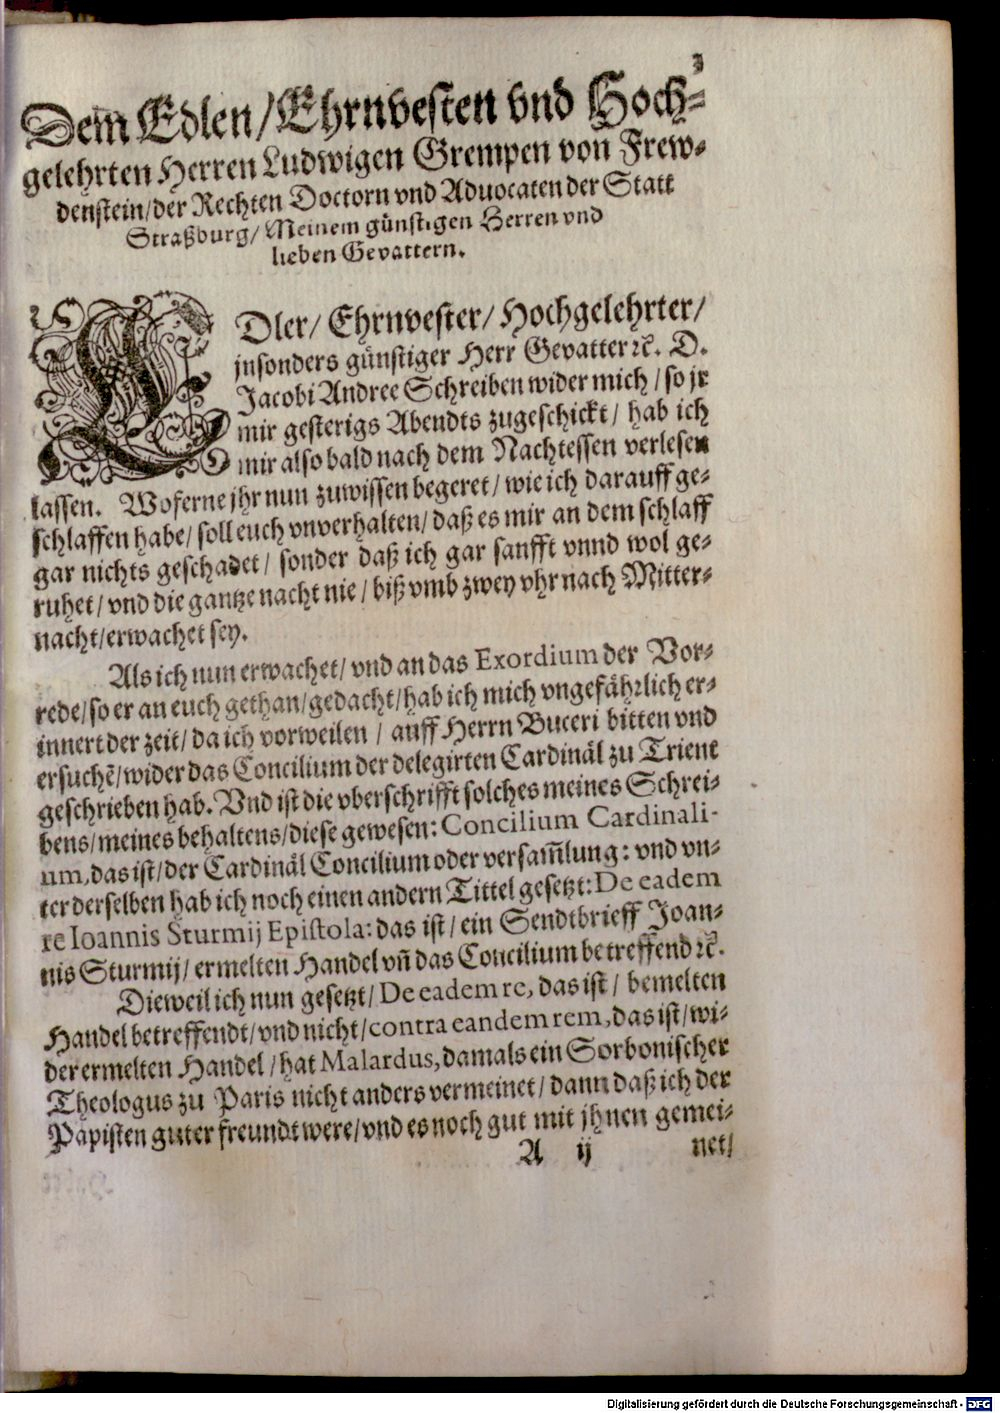 3
Dem Edlen/Ehrnvesten vnd Hoch-
gelehrten Herren Ludwigen Grempen von Frew-
denstein/der Rechten Doctorn vnd Aduocaten der Statt
Straßburg/ Meinem günstigen Herren vnd
lieben Gevattern.
EDler/ Ehrnvester/ Hochgelehrter/
jnsonders günstiger Herr Gevatter ꝛc̃. D.
Jacobi Andree Schreiben wider mich / so jr
mir gesterigs Abendts zugeschickt/ hab ich
mir also bald nach dem Nachtessen verlesen
lassen. Woferne jhr nun zuwissen begeret/ wie ich darauff ge-
schlaffen habe/ soll euch vnverhalten/ daß es mir an dem schlaff
gar nichts geschadet/ sonder daß ich gar sanfft vnnd wol ge-
ruhet/ vnd die gantze nacht nie / biß vmb zwey vhr nach Mitter-
nacht/erwachet sey.
Als ich nun erwachet/ vnd an das Exordium der Vor-
rede/so er an euch gethan/gedacht/hab ich mich vngefährlich er-
innert der zeit/ da ich vorweilen / auff Herrn Buceri bitten vnd
ersuchẽ/wider das Concilium der delegirten Cardinäl zu Trient
geschrieben hab. Vnd ist die vberschrifft solches meines Schrei-
bens/meines behaltens/diese gewesen: Concilium Cardinali-
um, das ist/der Cardinäl Concilium oder versam̃lung: vnd vn-
ter derselben hab ich noch einen andern Tittel gesetzt: De eadem
re Ioannis Sturmij Epistola: das ist/ ein Sendtbrieff Joan-
nis Sturmij/ ermelten Handel vñ das Concilium betreffend ꝛc̃.
Dieweil ich nun gesetzt/ De eadem re, das ist/ bemelten
Handel betreffendt/vnd nicht/contra eandem rem, das ist/wi-
der ermelten Handel /hat Malardus, damals ein Sorbonischer
Theologus zu Paris nicht anders vermeinet/ dann daß ich der
Papisten guter freundt were/vnd es noch gut mit jhnen gemei-
A ij net/
Digitalisierung gefördert durch die Deutsche Forschungsgemeinschaft - DFG